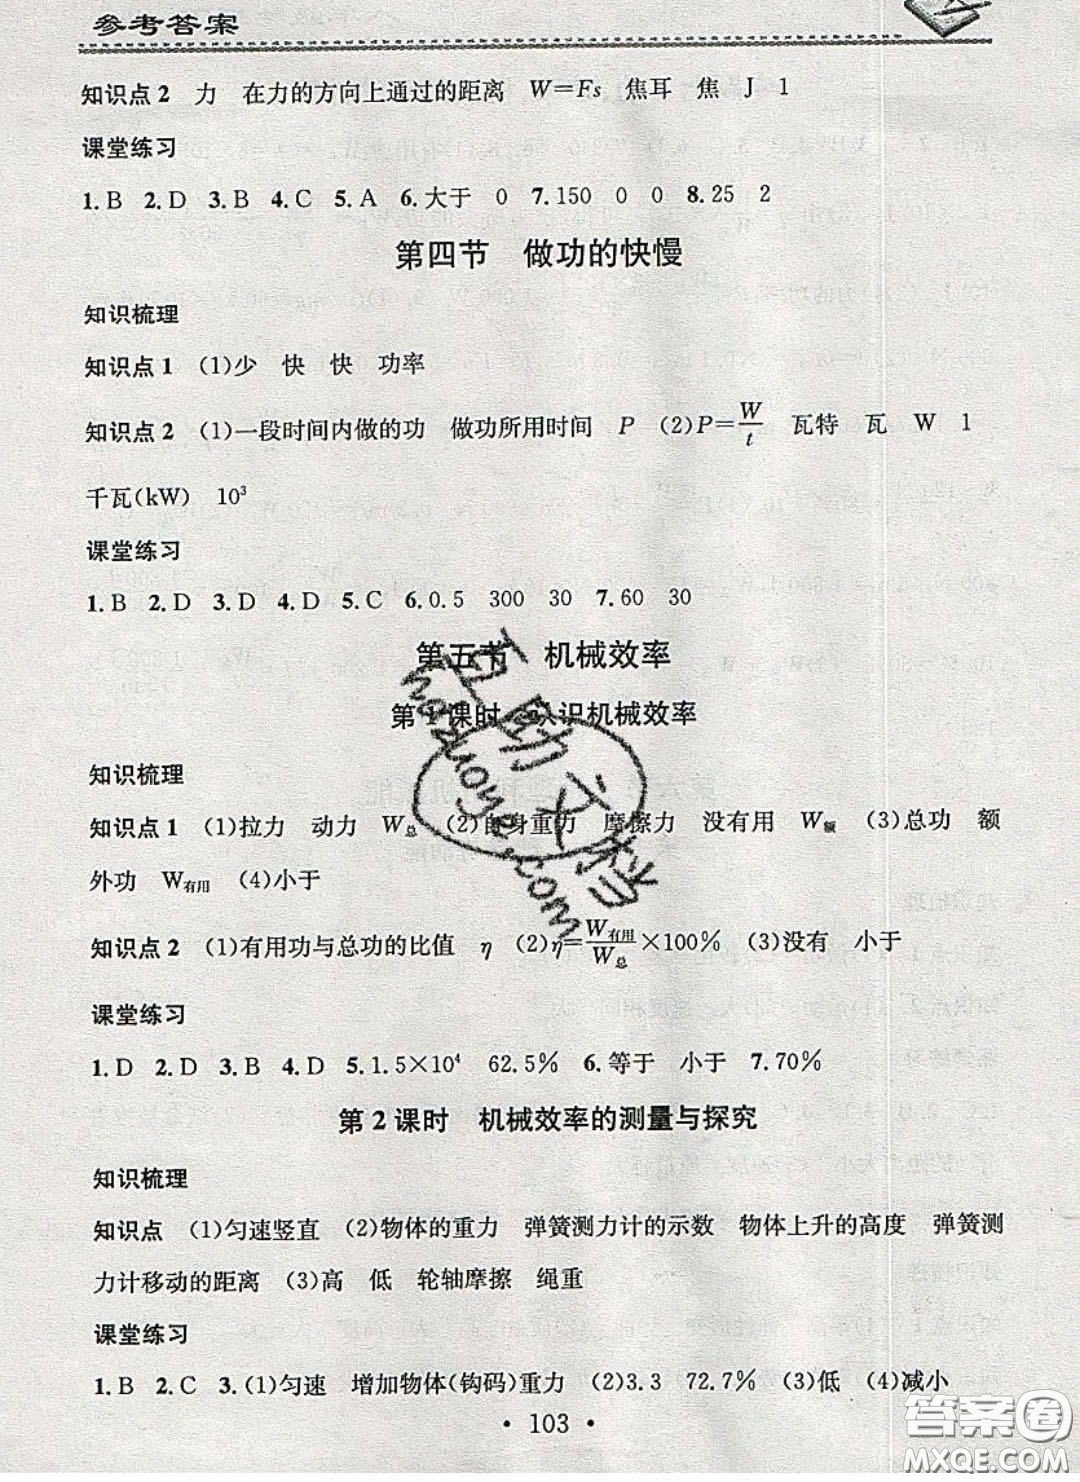 参考答案
知识点2 力 在力的方向上通过的距离 W=Fs 焦耳 焦 J 1
课堂练习
1.B 2.D 3.B 4.C 5.A 6.大于 0 7.150 0 0 8.25 2
第四节 做功的快慢
知识梳理
知识点1 (1)少 快 快 功率
知识点2 (1)一段时间内做的功 做功所用时间 P (2)P=W/t 瓦特 瓦 W 1
千瓦(kW) 10³
课堂练习
1.B 2.D 3.D 4.D 5.C 6.0.5 300 30 7.60 30
第五节 机械效率
第1课时 认识机械效率
知识梳理
知识点1 (1)拉力 动力 W总 (2)自身重力 摩擦力 没有用 W额 (3)总功 额
外功 W有用 (4)小于
知识点2 (1)有用功与总功的比值 η (2)η=W有用/W总×100% (3)没有 小于
课堂练习
1.D 2.D 3.B 4.D 5.1.5×10⁴ 62.5% 6.等于 小于 7.70%
第2课时 机械效率的测量与探究
知识梳理
知识点 (1)匀速竖直 (2)物体的重力 弹簧测力计的示数 物体上升的高度 弹簧测
力计移动的距离 (3)高 低 轮轴摩擦 绳重
课堂练习
1.B 2.C 3.(1)匀速 增加物体(钩码)重力 (2)3.3 72.7% (3)低 (4)减小
• 103 •
答案圈
MXQE.COM